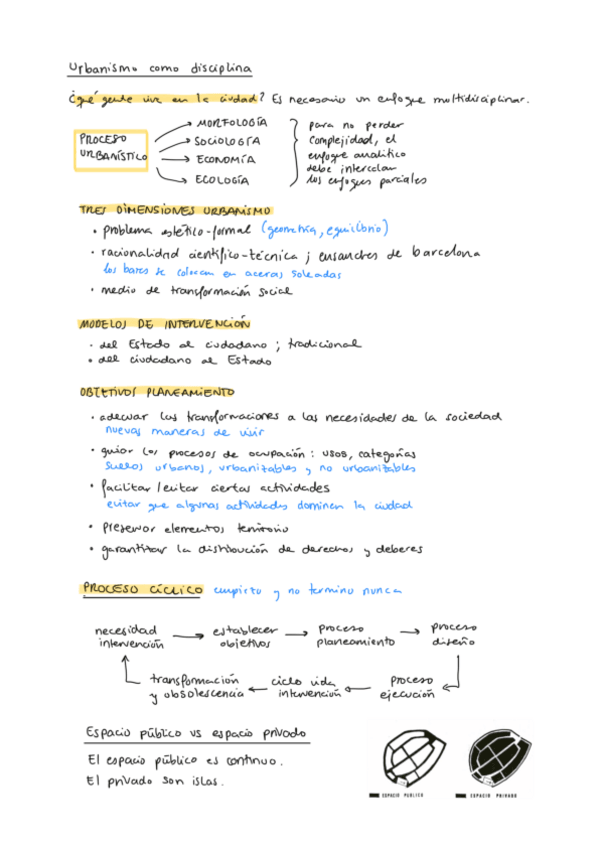 Urbanismo como disciplina
¿qué gente vive en la ciudad? Es necesario un enfoque multidisciplinar.
PROCESO
URBANÍSTICO
MORFOLOGÍA
SOCIOLOGÍA
ECONOMÍA
ECOLOGÍA
para no perder
complejidad, el
enfoque analítico
debe intercalar
los enfoques parciales
TRES DIMENSIONES URBANISMO
• problema estético-formal (geometría, equilibrio)
• racionalidad científico-técnica ; ensanches de barcelona
los bares se colocan en aceras soleadas
• medio de transformación social
MODELOS DE INTERVENCIÓN
• del Estado al ciudadano ; tradicional
• del ciudadano al Estado
OBJETIVOS PLANEAMIENTO
• adecuar las transformaciones a las necesidades de la sociedad
nuevas maneras de vivir
• guiar los procesos de ocupación : usos, categorías
suelos urbanos, urbanizables y no urbanizables
• facilitar/evitar ciertas actividades
evitar que algunas actividades dominen la ciudad
• preservar elementos territorio
• garantizar la distribución de derechos y deberes
PROCESO CÍCLICO empieza y no termina nunca
necesidad
intervención
establecer
objetivos
proceso
planeamiento
proceso
diseño
proceso
ejecución
ciclo vida
intervención
transformación
y obsolescencia
Espacio público vs espacio privado
El espacio público es continuo.
El privado son islas.
ESPACIO PUBLICO
ESPACIO PRIVADO